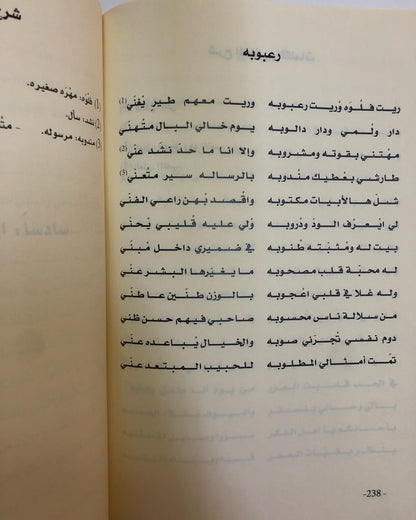 رعبوبه
وريت فلوه وريت رعبوبه وريت معهم طير يغني (1)
دار ولمي ودار دالوبه يوم خالي البال متهني
مهتني بقوته ومشروبه والا انا ما حد نشد عني (2)
طارشي بعطيك مندوبه بالرساله سير متعني (3)
شل هالأبيات مكتوبه واقصد بهن راعي الفني
لي ايعرف الود ودروبه ولي عليه قليبي يحني
بيت له ومثبته طنوبه في ضميري داخل مبني
له محبة قلب مصحوبه ما يغيرها البشر عني
وله غلا في قلبي اعجوبه بالوزن طنين عا طني
من سلالة ناس محسوبه صاحبي فيهم حسن ظني
دوم نفسي تجزني صوبه والخيال يباعده عني
تمت أمثالي المطلوبه للحبيب المبتعد عني
- 238 -
شرح
(1) فلوه: مهره صغيره.
(2) نشد: سأل.
(3) مندوبه: مرسوله.